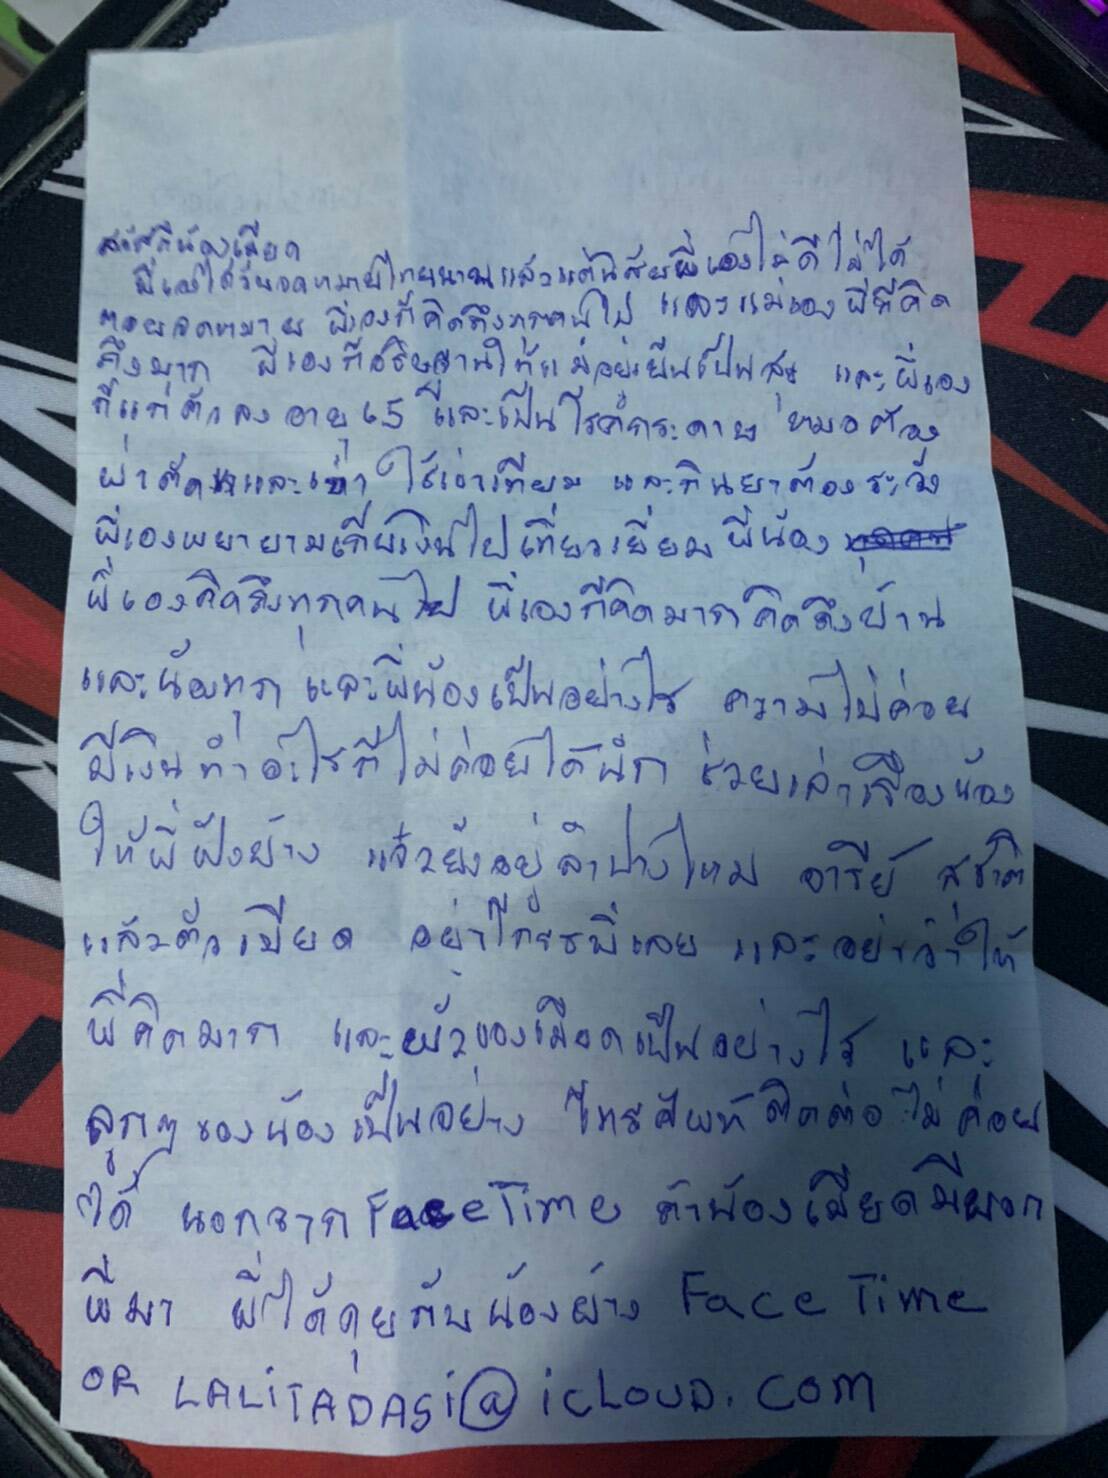 สวัสดีน้องเมียด
พี่เองได้รับจดหมายไทยนานแล้วแต่นิสัยพี่เองไม่ดีไม่ได้
ตอบจดหมาย พี่เองก็คิดถึงทุกคนไป และแม่ของพี่ก็คิด
ถึงมาก พี่เองก็อธิษฐานให้แม่อยู่เย็นเป็นสุข และพี่เอง
ก็แก่ตัวลงอายุ 65 ปีและเป็นโรค หมอต้อง
ผ่าตัด และเข่า ใช้เข่าเทียม และกินยาต้องระวัง
พี่เองพยายามเก็บเงินไปเที่ยวเยี่ยม พี่น้อง
พี่เองคิดถึงทุกคนไป พี่เองก็คิดมากคิดถึงบ้าน
และน้องทุก และพี่น้องเป็นอย่างไร ความไม่ค่อย
มีเงินทำอะไรก็ไม่ค่อยได้นัก ช่วยเล่าเรื่องน้อง
ให้พี่ฟังบ้าง แจ๋วยังอยู่ลำปางไหม อารีย์ สุชาติ
แล้วตัวเมียด อย่าโกรธพี่เลย และอย่าว่าให้
พี่คิดมาก และผัวของเมียดเป็นอย่างไร และ
ลูกๆของน้องเป็นอย่าง โทรศัพท์ติดต่อไม่ค่อย
ได้ นอกจาก FaceTime ถ้าน้องเมียดมีบอก
พี่มา พี่ได้คุยกับน้องบ้าง Face Time
OR LALITADASi@iCLOUD.COM